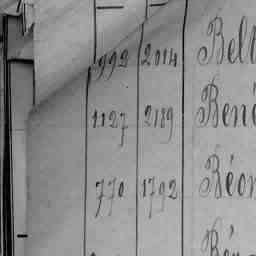 992 2014 Belt
1127 2189 Bené
770 1792 Béon